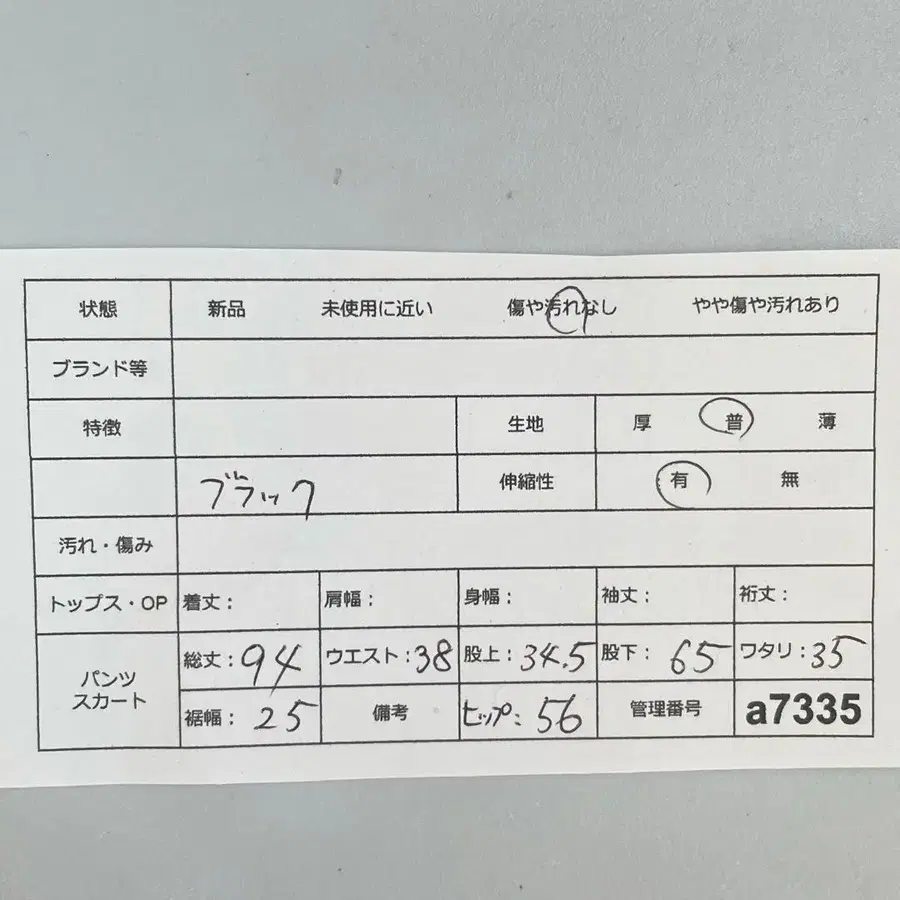 状態 新品 未使用に近い 傷や汚れなし やや傷や汚れあり
ブランド等
特徴 生地 厚 普 薄
ブラック 伸縮性 有 無
汚れ・傷み
トップス・OP 着丈： 肩幅： 身幅： 袖丈： 裄丈：
パンツ スカート 総丈：94 ウエスト：38 股上：34.5 股下： 65 ワタリ：35
裾幅： 25 備考 ヒップ：56 管理番号 a7335